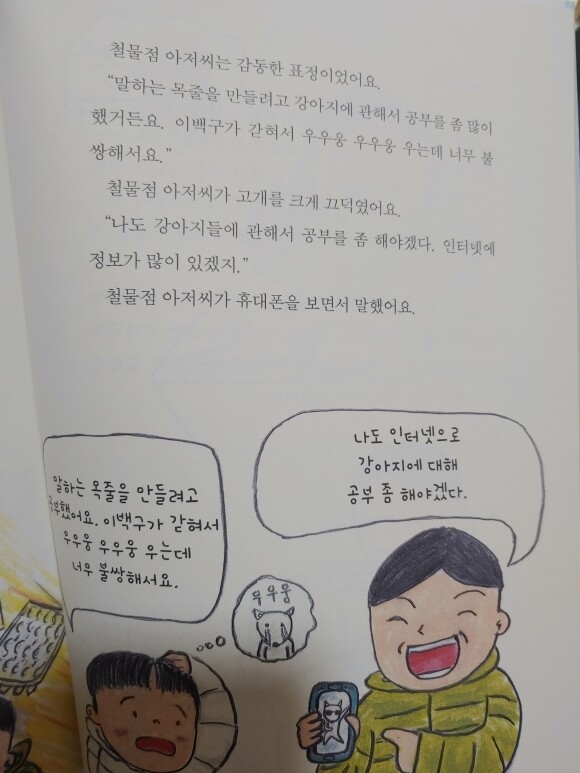 철물점 아저씨는 감동한 표정이었어요.
“말하는 목줄을 만들려고 강아지에 관해서 공부를 좀 많이
했거든요. 이백구가 갇혀서 우우웅 우우웅 우는데 너무 불
쌍해서요.”
철물점 아저씨가 고개를 크게 끄덕였어요.
“나도 강아지들에 관해서 공부를 좀 해야겠다. 인터넷에
정보가 많이 있겠지.”
철물점 아저씨가 휴대폰을 보면서 말했어요.
나도 인터넷으로
강아지에 대해
공부 좀 해야겠다.
말하는 목줄을 만들려고
공부했어요. 이백구가 갇혀서
우우웅 우우웅 우는데
너무 불쌍해서요.
우우웅